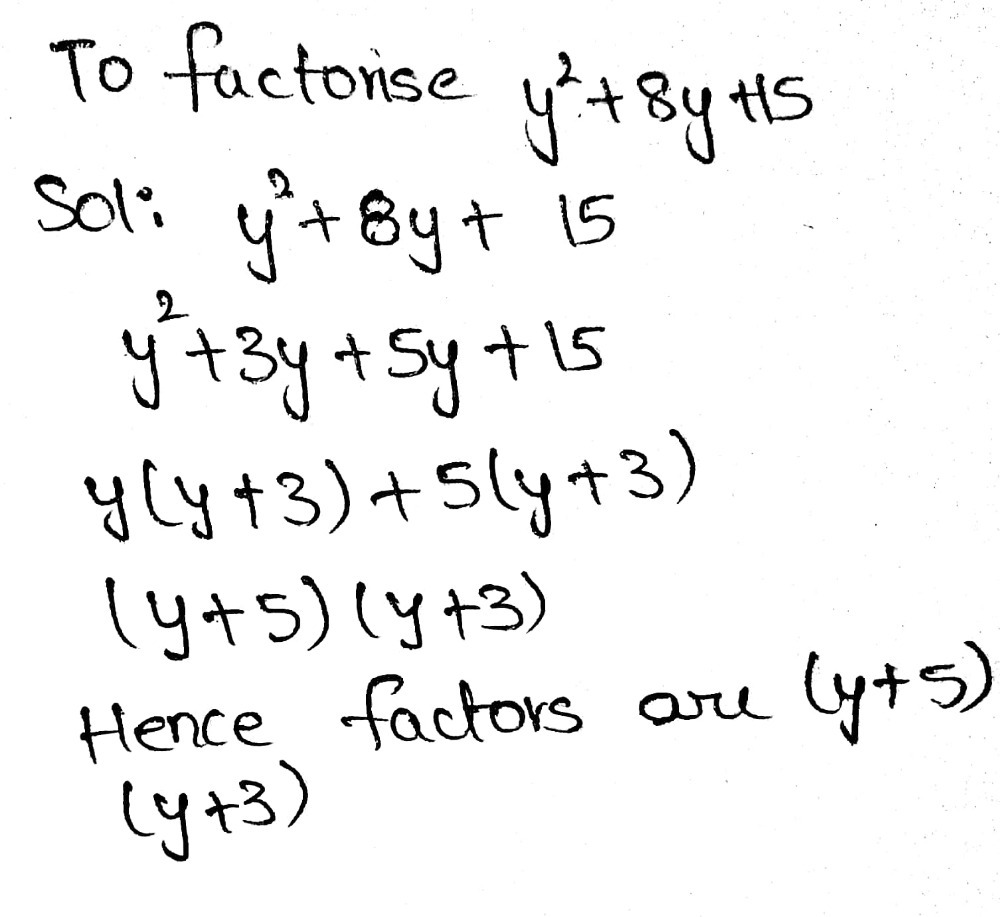 To factorise y²+8y+15
Sol: y²+8y+ 15
y²+3y+5y+15
y(y+3)+5(y+3)
(y+5)(y+3)
Hence factors are (y+5)
(y+3)